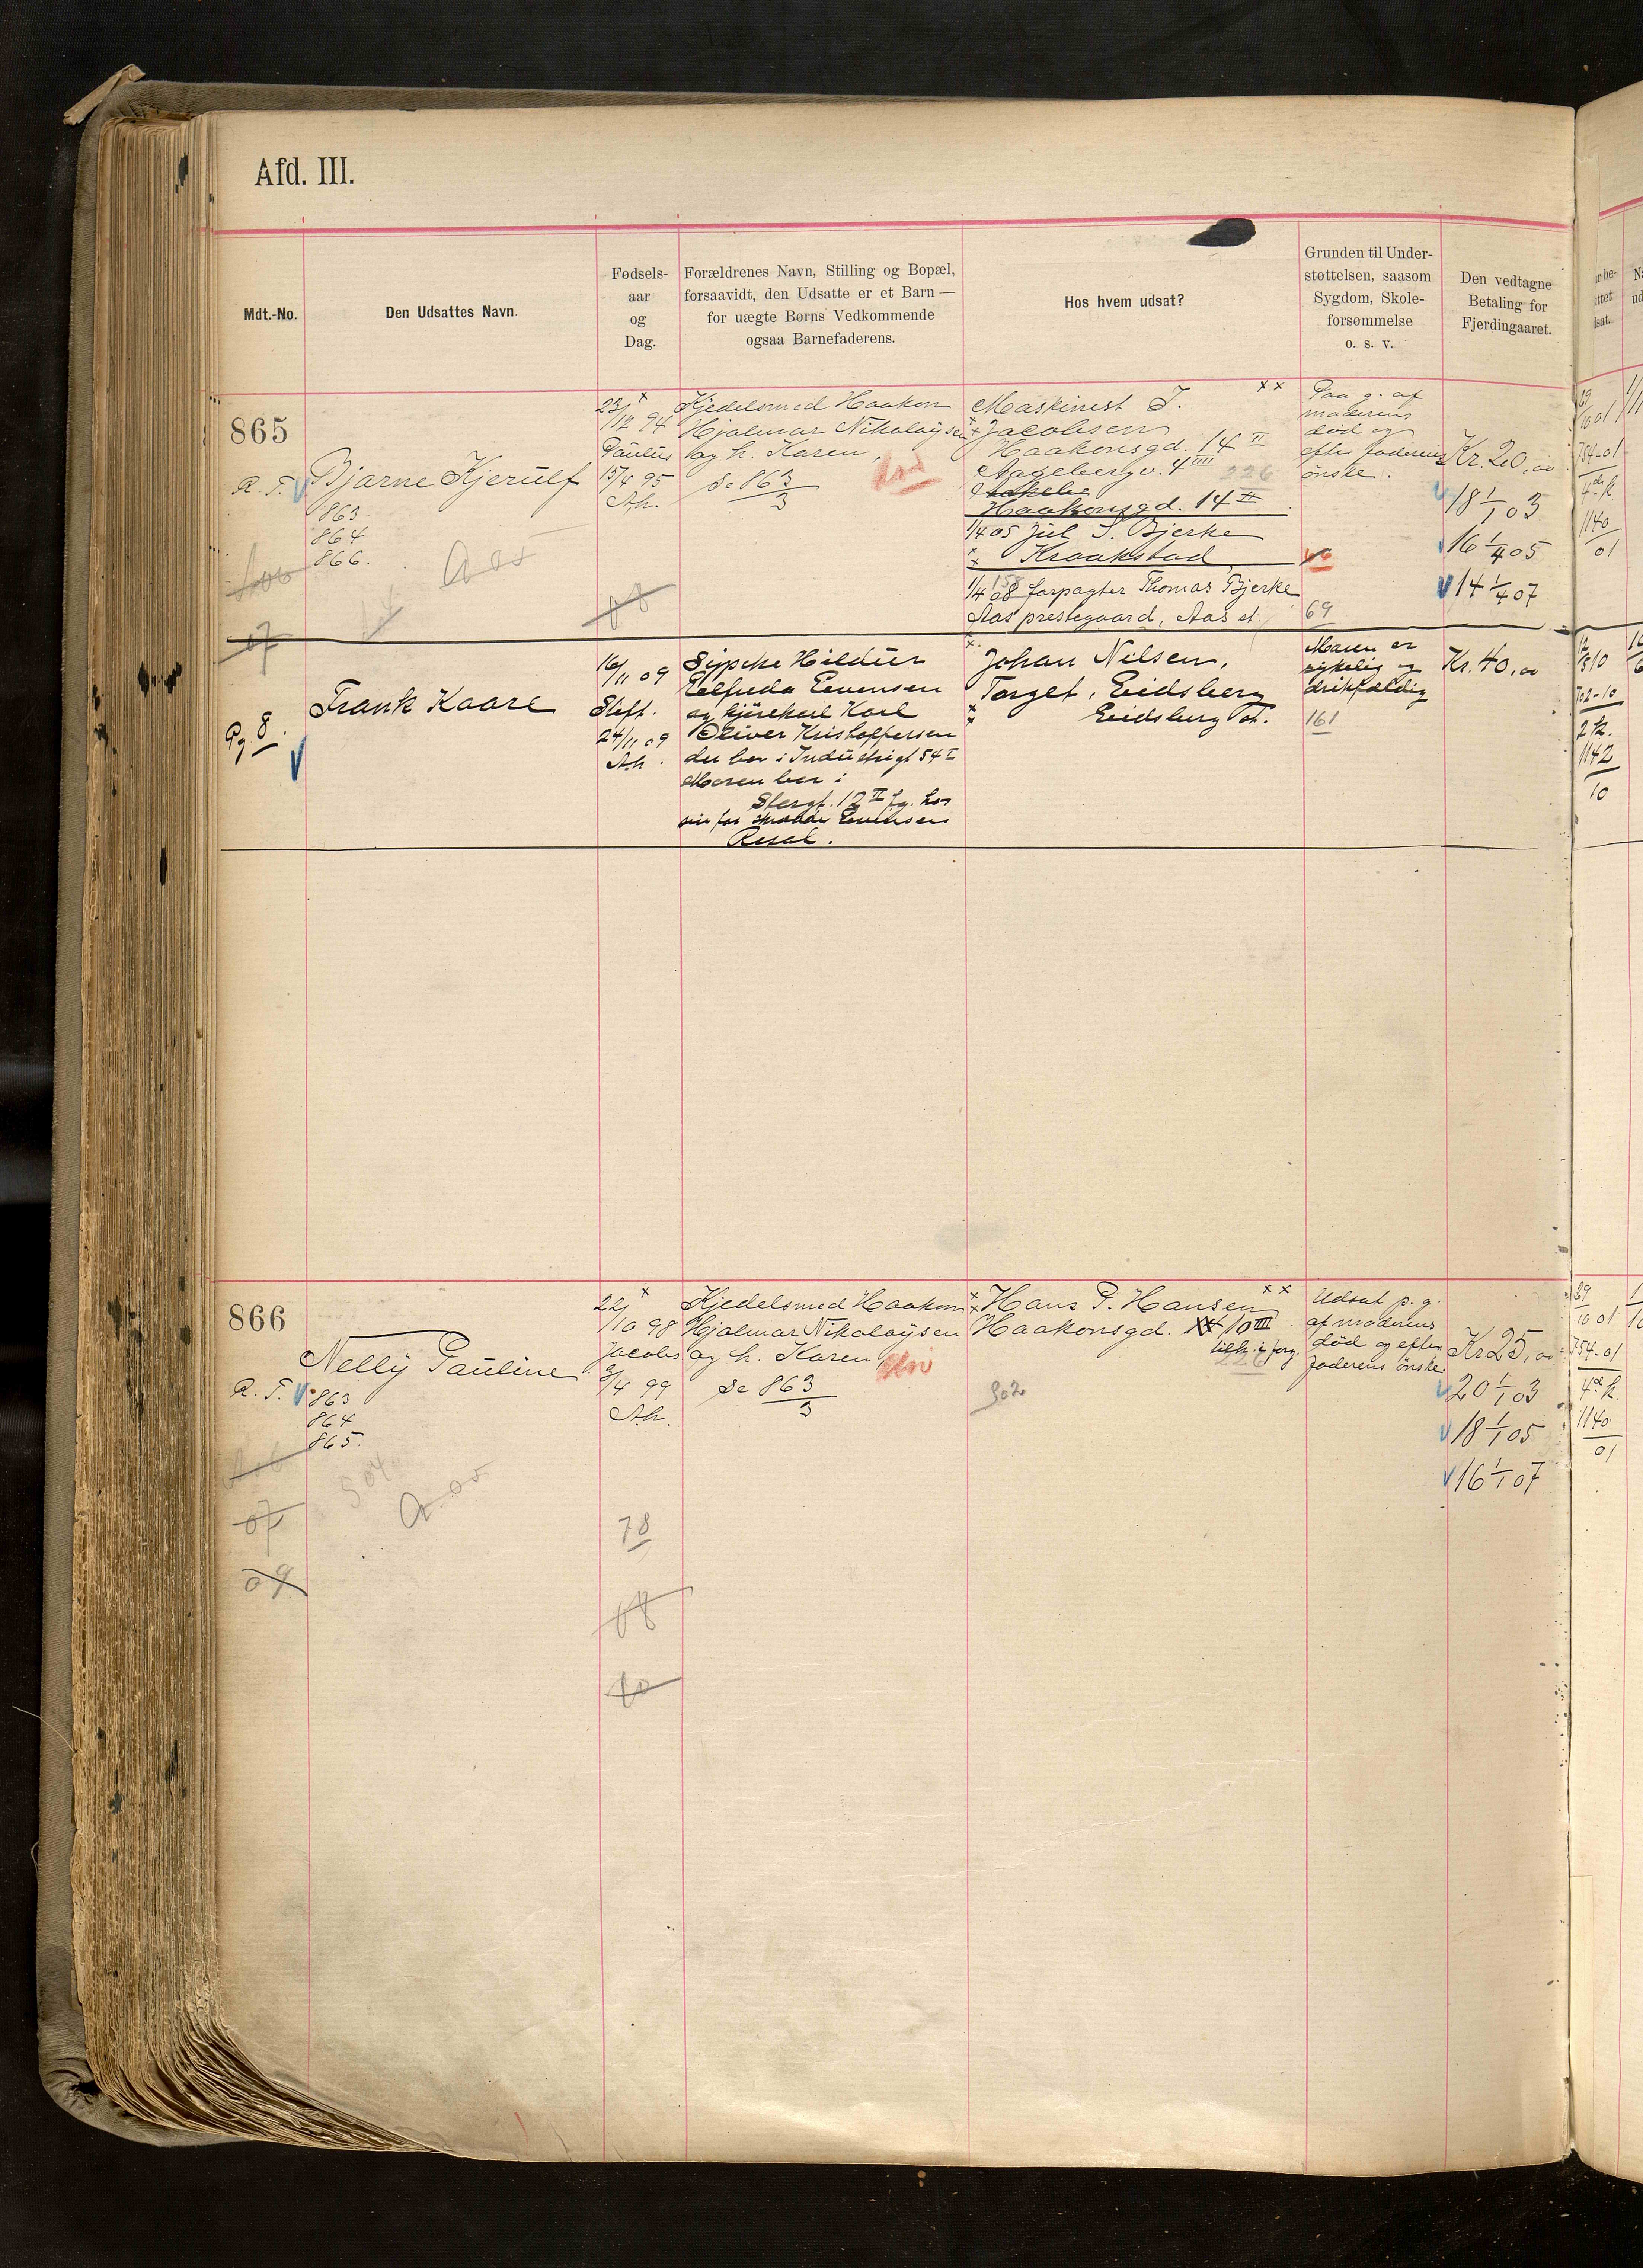 Afd. III.
Mdt.-No.
Den Udsattes Navn.
Fødsels-
aar
og
Dag.
Forældrenes Navn, Stilling og Bopæl,
forsaavidt, den Udsatte er et Barn —
for uægte Børns Vedkommende
ogsaa Barnefaderens.
Hos hvem udsat?
Grunden til Under-
støttelsen, saasom
Sygdom, Skole-
forsømmelse
o. s. v.
Den vedtagne
Betaling for
Fjerdingaaret.
865
R. F.
Bjarne Kjerülf
863
864
866.
07
23/12 94
Paulus
15/4 95
Ah.
Kjedelsmed Haakon
Hjalmar Nikolaÿsen
og h. Karen,
Se 863
3
Maskinist J.
Jacobsen
Haakonsgd. 14 II
Aagebergv. 4 IIII
226
Haakonsgd. 14 II
1/4 05 Jul S. Bjerke
Kraakstad
158
1/4 08 forpagter Thomas Bjerke
Aas prestegaard, Aas st.
Paa g. af
moderens
død og
efter faderens
ønske.
69
Kr. 20,00
18 1/1 03
16 1/4 05
14 1/4 07
Pg 8.
Frank Kaare
16/11 09
Steft.
24/11 09
Ah.
Sypike Hildur
Elfrida Evensen
og kjørekarl Karl
Oliver Kristoffersen
der bor i Industrigt 54 I
Moren bor i
Stergt. 12 II fg. hos
sin far Evensen
Johan Nilsen,
Torget, Eidsberg
Eidsberg st.
Moren er
sykelig og
drikfældig
161
Kr. 40,00
866
R. F.
Nelly Pauline
863
864
865.
07
09
22/10 98
Jacobs
3/4 99
Ah.
78
Kjedelsmed Haakon
Hjalmar Nikolaÿsen
og h. Karen
Se 863
3
Hans P. Hansen
Haakonsgd. 10 III
tilh. i forg.
302
Udsat p. g.
af moderens
død og efter
faderens ønske
Kr 25,00
20 1/1 03
18 1/1 05
16 1/1 07
10 01
754-01
1140
01
702-10
2 k.
1142
10
69
10 01
754-01
1140
01